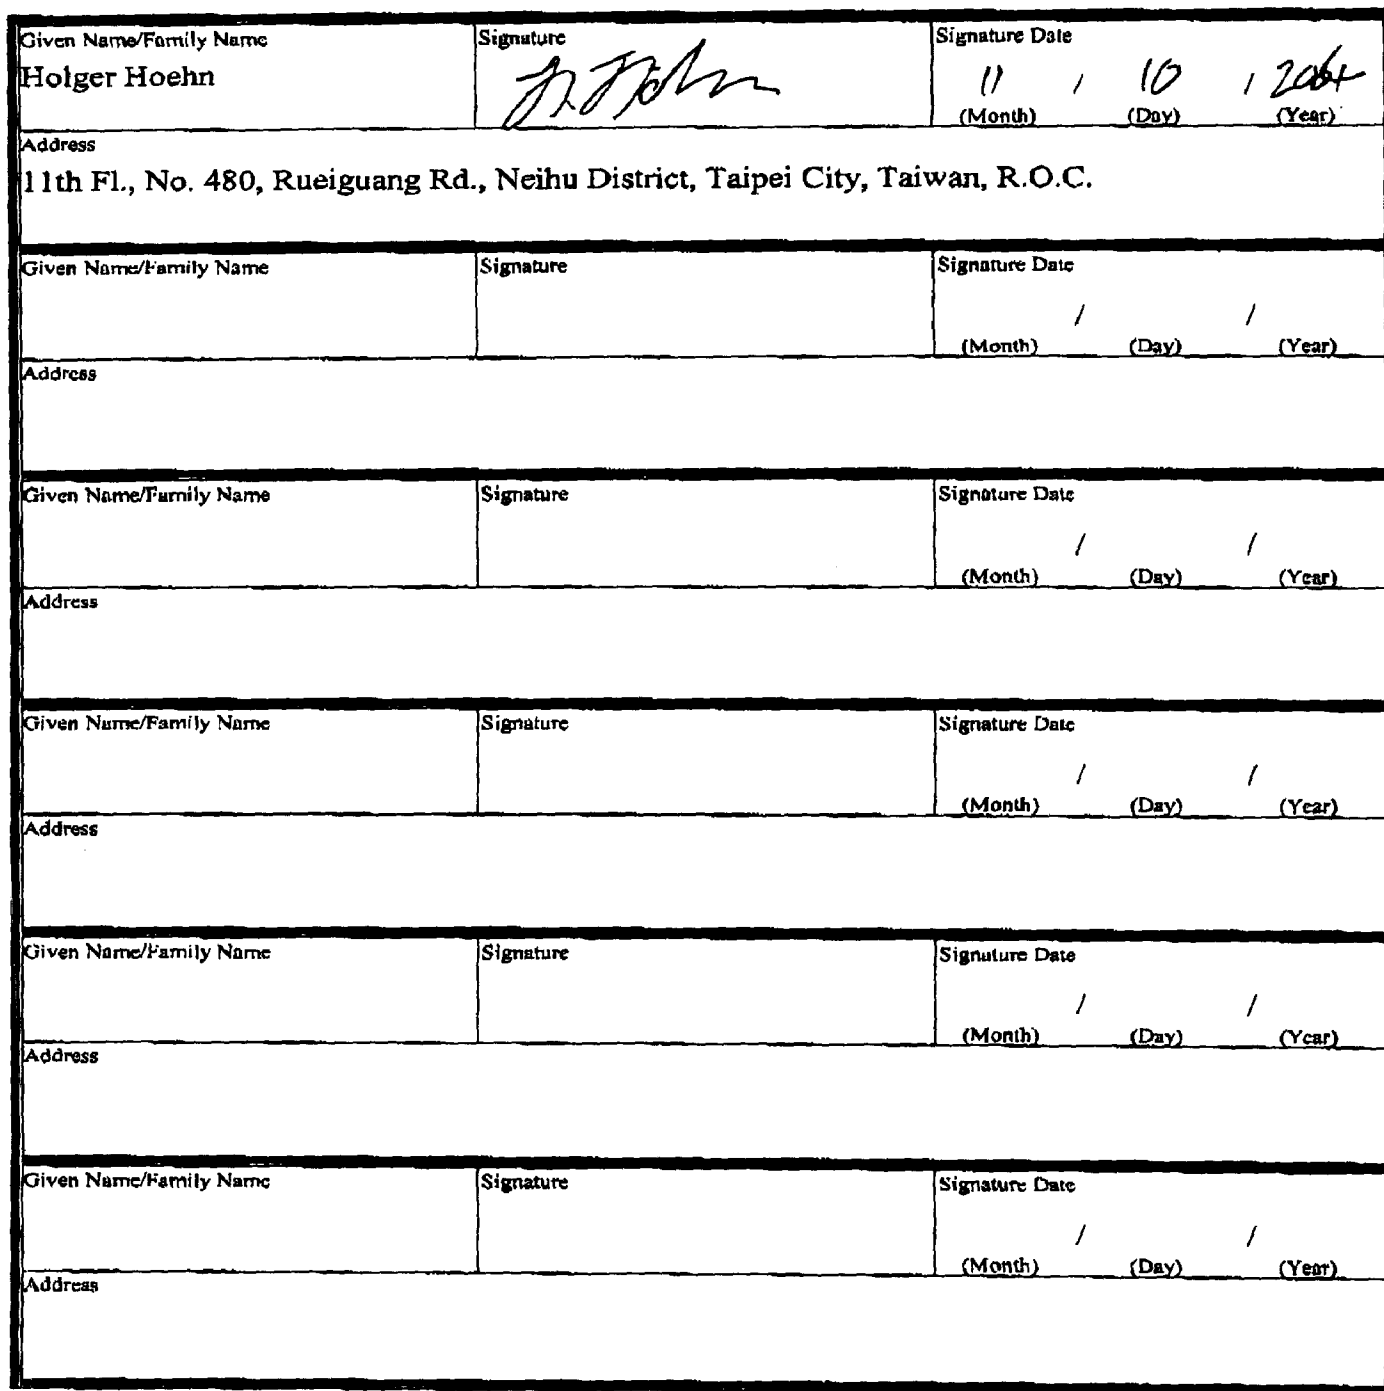 Given Name/Family Name Signature Signature Date
Holger Hoehn 11 / 10 / 2004
(Month) (Day) (Year)
Address
11th Fl., No. 480, Rueiguang Rd., Neihu District, Taipei City, Taiwan, R.O.C.
Given Name/Family Name Signature Signature Date
/ /
(Month) (Day) (Year)
Address
Given Name/Family Name Signature Signature Date
/ /
(Month) (Day) (Year)
Address
Given Name/Family Name Signature Signature Date
/ /
(Month) (Day) (Year)
Address
Given Name/Family Name Signature Signature Date
/ /
(Month) (Day) (Year)
Address
Given Name/Family Name Signature Signature Date
/ /
(Month) (Day) (Year)
Address